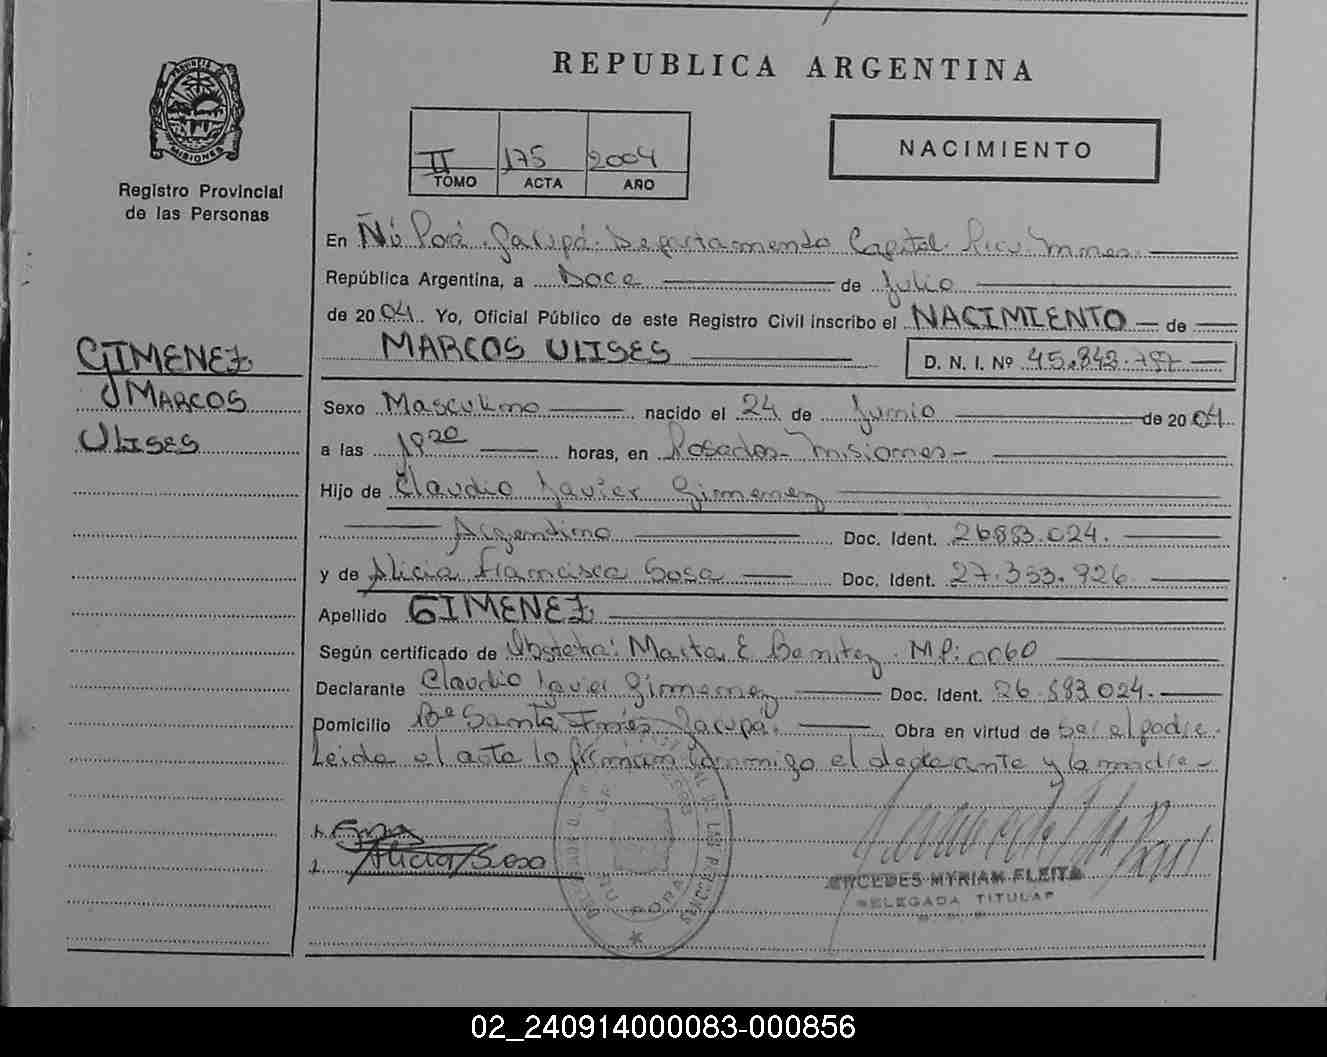 REPUBLICA ARGENTINA
PROVINCIA DE
MISIONES
Registro Provincial
de las Personas
II 175 2004
TOMO ACTA AÑO
NACIMIENTO
En Ñú Porá. Garupá. Departamento Capital.
República Argentina, a Doce de Julio
de 2004. Yo, Oficial Público de este Registro Civil inscribo el NACIMIENTO de
MARCOS ULISES D. N. I. Nº 45.843.797
GIMENEZ
MARCOS
ULISES
Sexo Masculino nacido el 24 de Junio de 2004
a las 1920 horas, en Posadas - Misiones -
Hijo de Claudio Javier Gimenez
Argentino Doc. Ident. 26.883.024.
y de Alicia Francisca Sosa Doc. Ident. 27.333.926
Apellido GIMENEZ
Según certificado de Obstetra: Marta E Benitez. MP: 0060
Declarante Claudio Javier Gimenez Doc. Ident. 26.883.024.
Domicilio Bº Santa Inés Garupá. Obra en virtud de ser el padre.
Leida el acta lo firman conmigo el declarante y la madre -
Alicia F Sosa
MERCEDES MYRIAM FLEITA
DELEGADA TITULAR
ÑU PORA
02_240914000083-000856